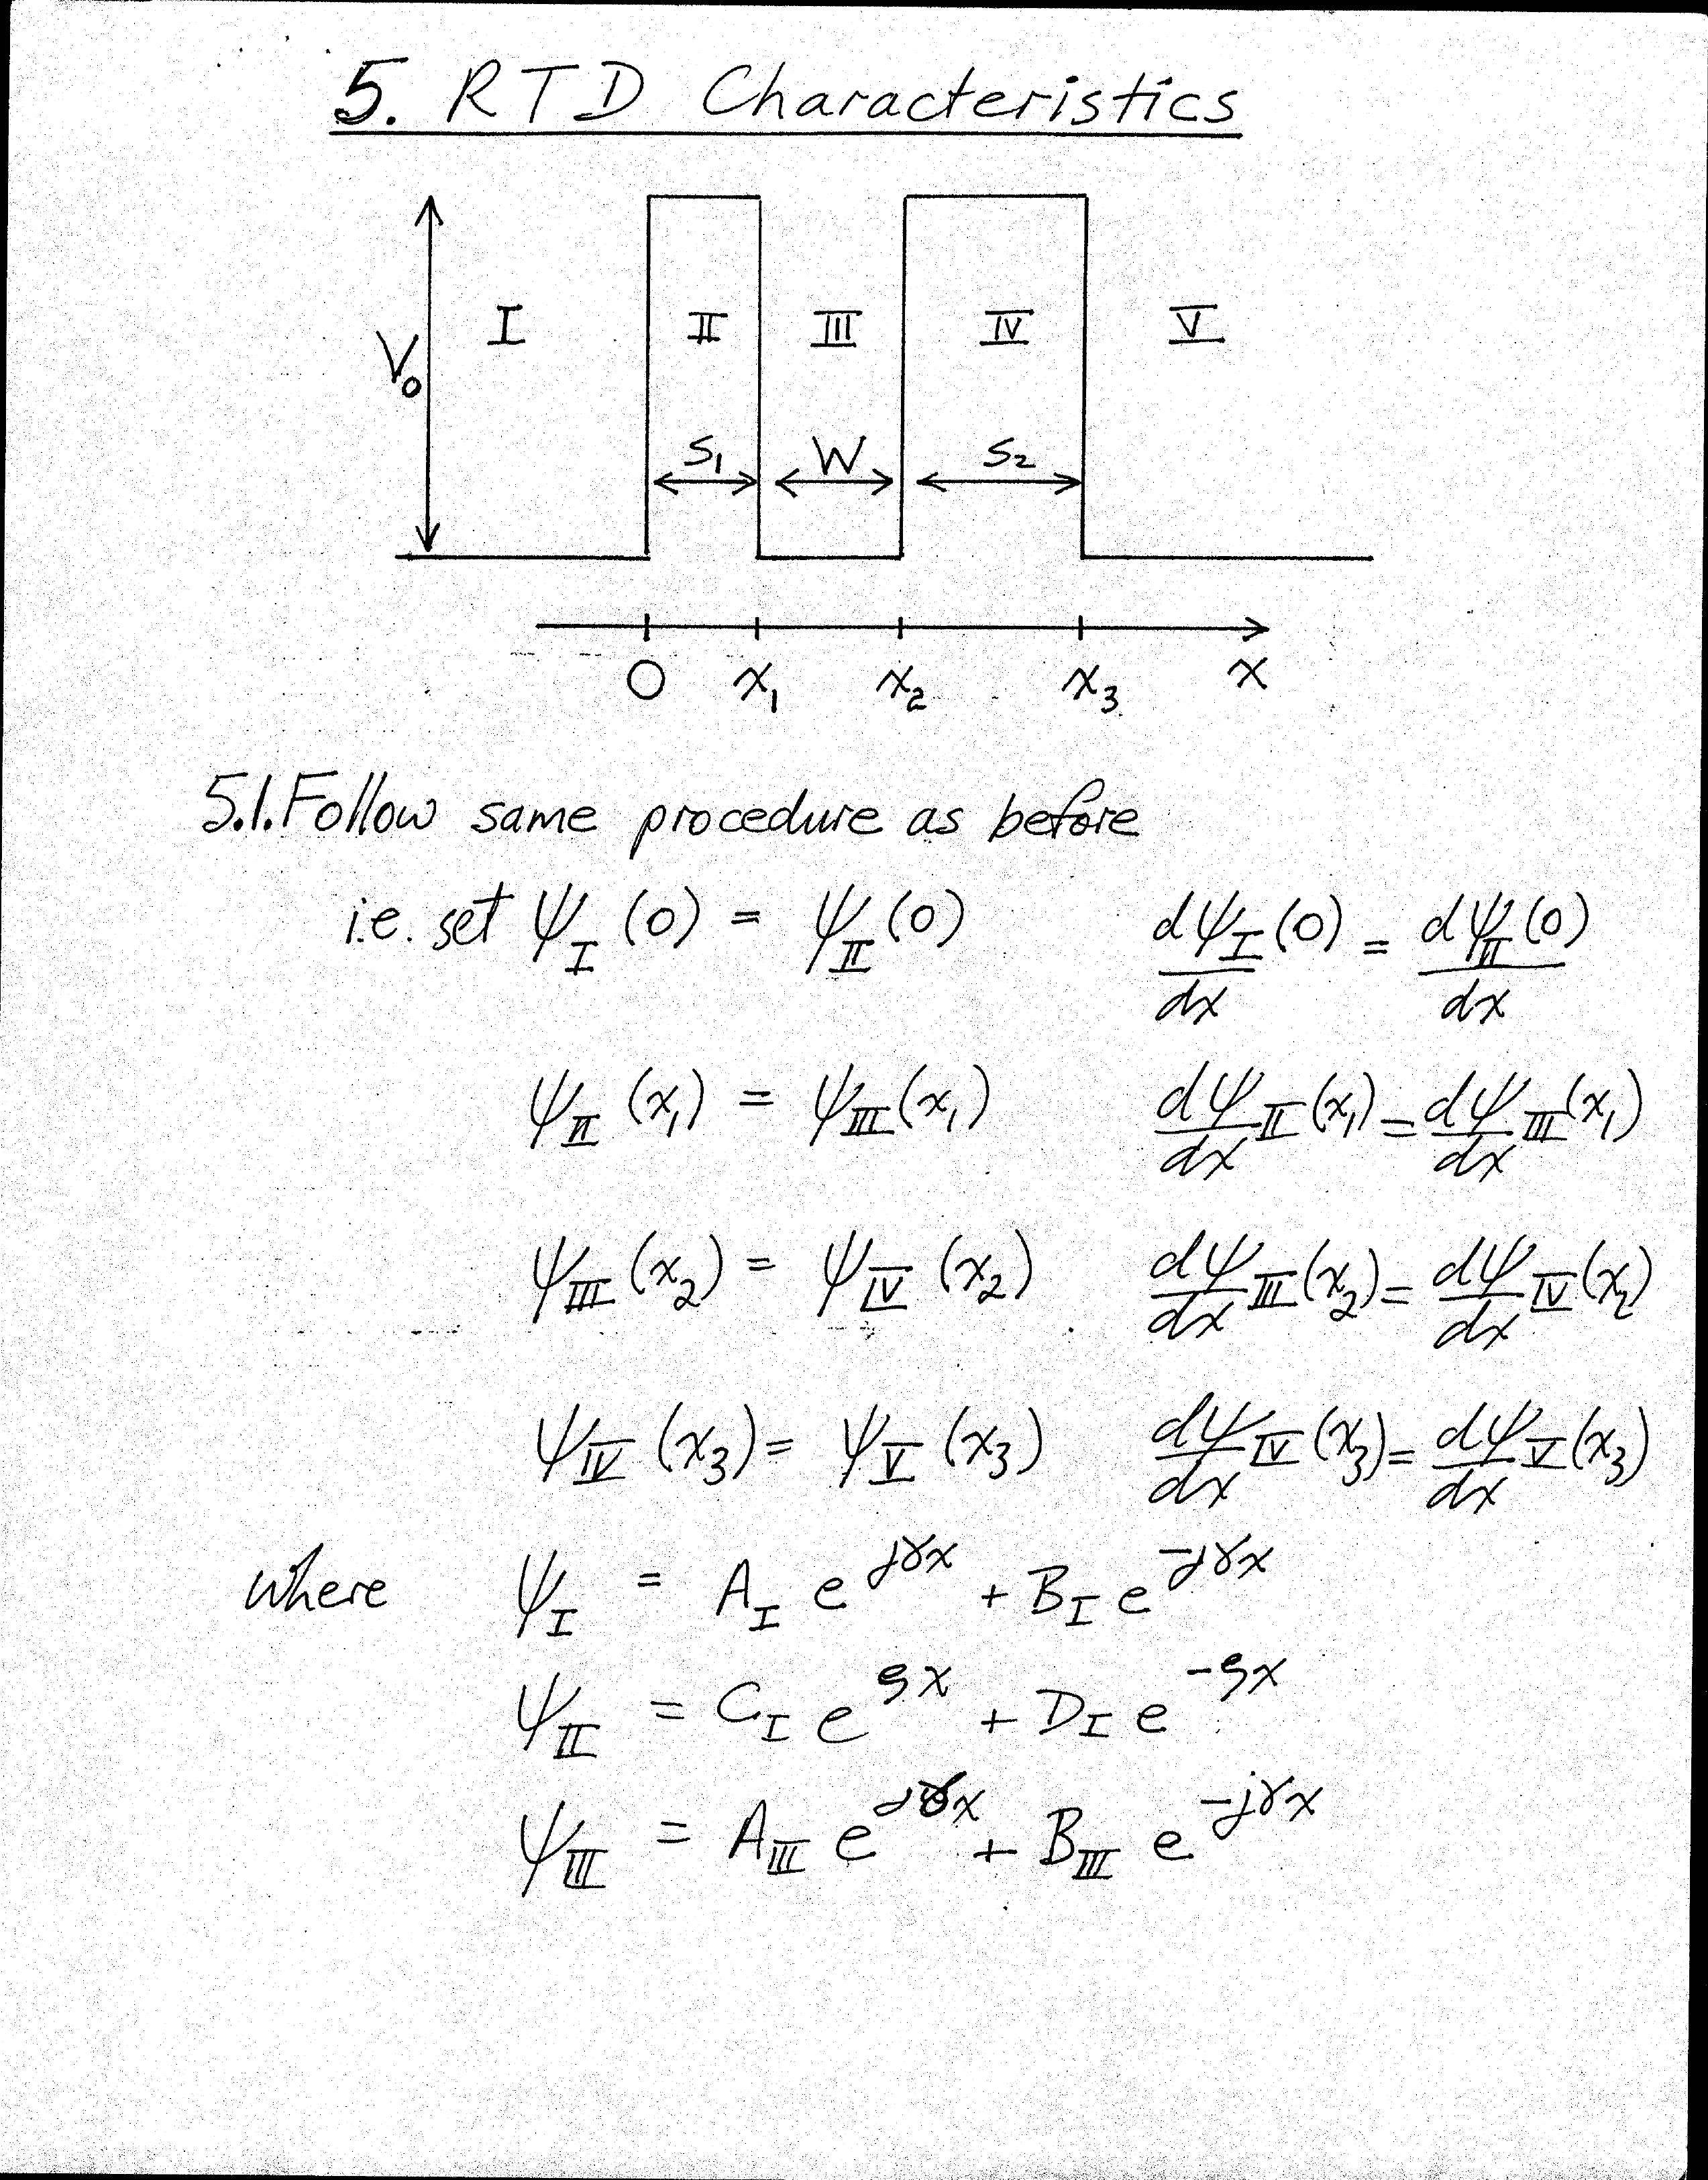 5. RTD Characteristics
V₀ I II III IV V
S₁ W S₂
0 x₁ x₂ x₃ x
5.1. Follow same procedure as before
i.e. set ψ_I (0) = ψ_II (0) dψ_I (0)/dx = dψ_II (0)/dx
ψ_II (x₁) = ψ_III (x₁) dψ/dx_II (x₁) = dψ/dx_III (x₁)
ψ_III (x₂) = ψ_IV (x₂) dψ/dx_III (x₂) = dψ/dx_IV (x₂)
ψ_IV (x₃) = ψ_V (x₃) dψ/dx_IV (x₃) = dψ/dx_V (x₃)
where ψ_I = A_I e^{jγx} + B_I e^{-jγx}
ψ_II = C_I e^{ςx} + D_I e^{-ςx}
ψ_III = A_III e^{jγx} + B_III e^{-jγx}